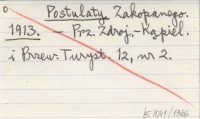 Postulaty Zakopanego.
1913. – Prz. Zdroj.-Kąpiel.
i Przew. Turyst. 12, nr 2.